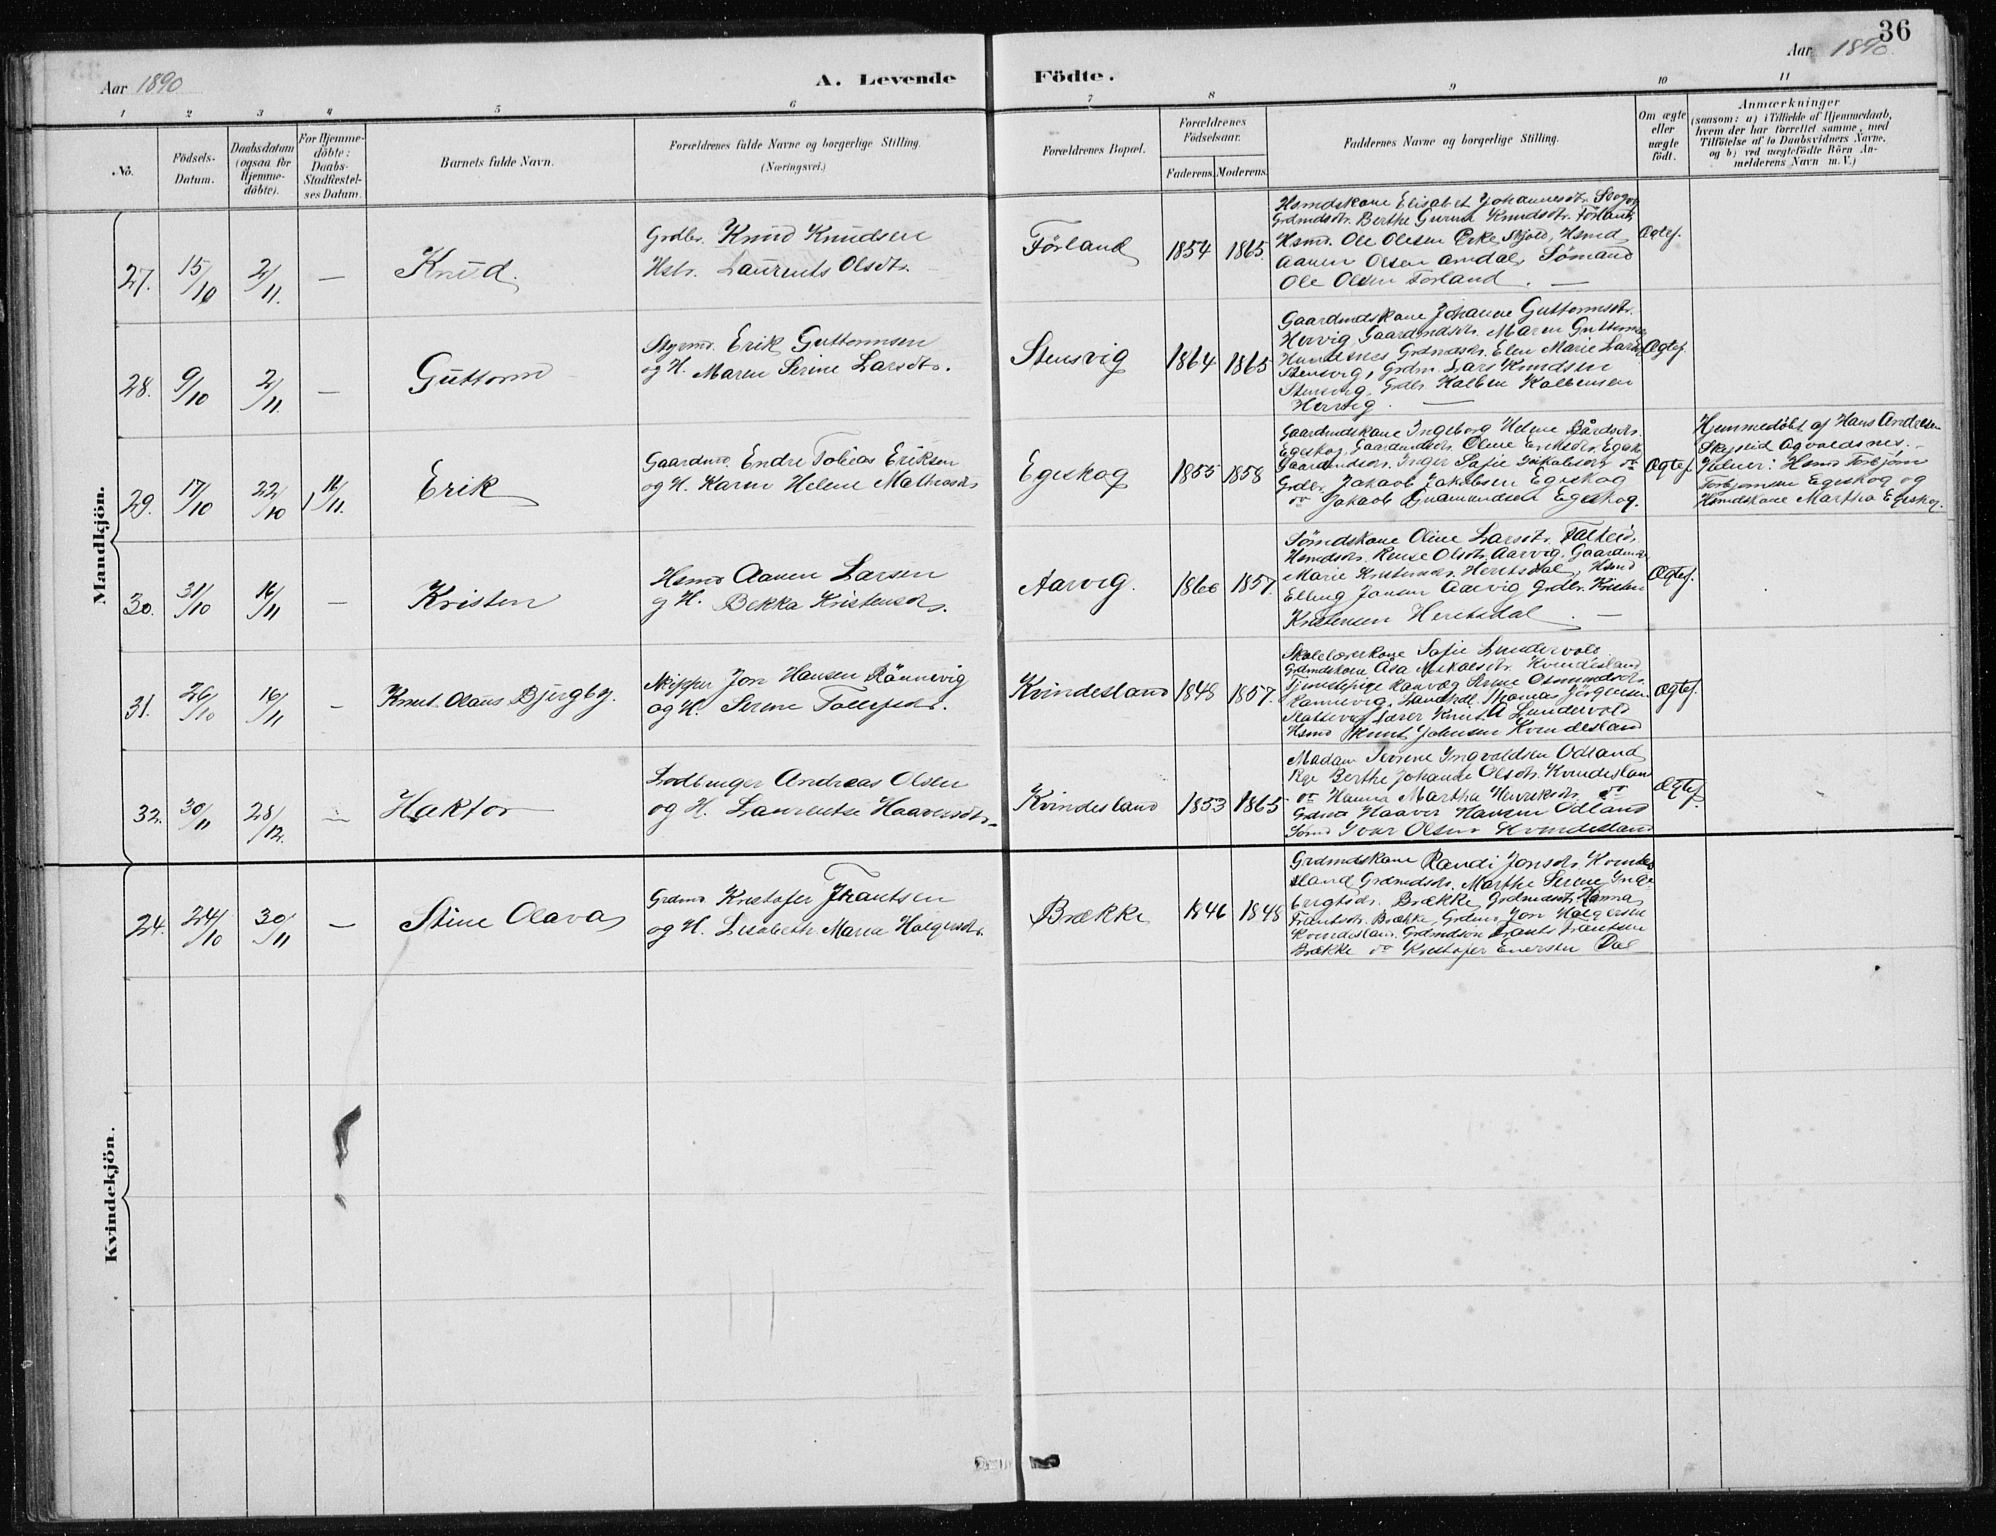 36
Aar 1890
A. Levende Födte.
Aar 1890.
1 2 3 4 5 6 7 8 9 10 11
No.
Födsels-
Datum.
Daabsdatum
(ogsaa for
Hjemme-
döbte).
For Hjemme-
döbte:
Daabs-
Stadfæstel-
ses Datum.
Barnets fulde Navn.
Forældrenes fulde Navne og borgerlige Stilling.
(Næringsvei.)
Forældrenes Bopæl.
Forældrenes
Födselsaar.
Faderens. Moderens.
Faddernes Navne og borgerlige Stilling.
Om ægte
eller
uægte
født.
Anmærkninger
(saasom: a) i Tilfælde af Hjemmedaab,
hvem der har forrettet samme, med
Tilföielse af to Daabsvidners Navne,
og b) ved uægtefödte Börn An-
melderens Navn m. V.)
Mandkjön.
27. 15/10 2/11. — Knud.
Grdbr. Knud Knudsen
Hstr. Laurents Olsdtr.
Førland 1854 1865.
Hsmdskone Elisabet Johannesdtr.
Grdmdsdtr. Berthe Gurina Knudsdtr. Førland
Hsmd. Ole Olesen Eike, Skjold, Hsmd
Aanen Olsen Amdal, Sømand
Ole Olsen Førland. —
Ægtef.
28. 9/10 2/11. — Guttorm
Styrmd. Erik Guttormsen
og H. Maren Serine Larsdtr.
Stensvig 1864 1865
Gaardmdskone Johanne Guttormsdtr.
Hervig, Gaardmdsdtr. Maren Guttorms
Grdmdsdtr. Elen Marie Larsd
Stensvig, Grdm. Lars Knudsen
Stensvig, Grdbr. Kolben Kolbensen
Hervig. —
Ægtef.
29. 17/10 22/10 16/11. Erik
Gaardmd. Endre Tobias Eriksen
og H. Karen Helene Mathiasdtr
Egeskog 1855 1858
Gaardmdskone Ingeborg Helene Bårdsdtr.
Egeskog, Gaardmdsdtr. Oline Eriksdtr. Egesk
Gaardmdsdtr. Inger Sofie Jakobsdtr do
Grdbr. Jakob Jakobsen Egeskog
do Jakob Gudmundsen Egeskog.
Ægtef.
Hjemmedøbt af Hans Andreasen
Skjeseid Agvaldsnes. —
Vidner: Hsmd Torbjørn
Torbjørnsen Egeskog og
Hsmdskone Martha Egeskog.
30. 31/10 16/11 — Kristen
Hsmd Aanen Larsen
og H. Bekka Kristensdtr.
Aarvig. 1866 1857.
Sømdskone Oline Larsdtr. Falkeid,
Hsmdsdtr. Olsdtr. Aarvig, Gaardmds
Marie Kristensdtr. Heretsdal, Hsmd
Elling Jansen Aarvig, Grdbr. Kristen
Kristensen Heretsdal. —
Ægtef.
31. 26/10 16/11 — Knut Olaus Bjergby.
Skipper Jon Hansen Rønnevig
og H. Serine Tollefsdtr.
Kvindesland 1848 1857.
Skolelærerkone Sofie Lundervold
Grdmdskone Åsa Mikalsdtr. Kvindesland,
Tjenestepige Ranveg Serine Osmundsdtr.
Rønnevig, Landhdl. Thomas Jørgensen
Slottevig, Lærer Knut A Lundervold
Hsmd Knut Johnsen Kvindesland
Ægtef.
32. 30/11 28/12. — Haktor
Andreas Olsen
og H. Laurentse Haaversdtr.
Kvindesland 1853 1865
Madam Serine Ingvoldsen Odland
Pge Berthe Johanne Olsdtr. Kvindesland
do Hanna Martha Henriksdtr. do
Grdmd Haaver Hansen Odland
Sømd Ivar Olsen Kvindesland
Ægtef.
Kvindekjön.
24. 24/10 30/11 — Stine Olava
Grdmd Kristofer Frantsen
og H. Lisabeth Maria Holgersdtr.
Brække 1846 1848
Grdmdskone Randi Jonsdtr. Kvindes
land Grdmdsdtr. Marthe Serine Inge-
brigtsdtr. Brække, Grdmdsdtr. Hanna
Frantsdtr. Brække, Grdmd Jon Holgersen
Kvindesland. Grdmdsøn Frants Frantsen
Brække do Kristofer Enersen Dal